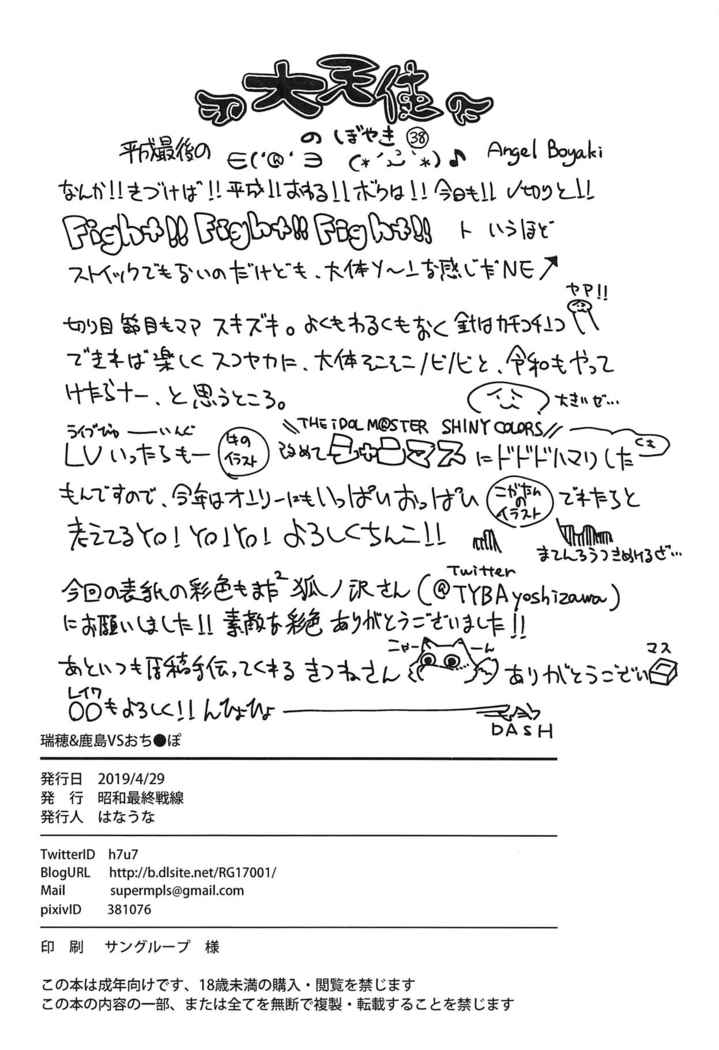 大天使
のぼやき㊳
平成最後の ∈('®'∋ (*´ω`*)♪ Angel Boyaki
なんか!!きづけば!!平成!!おわる!!ボクは!!今日も!!〆切りと!!
Fight!! Fight!! Fight!! ト いうほど
ストイックでもないのだけども、大体ソ〜ユな感じだNE↗
ヤア!!
切り目節目もマア スキズキ。よくもわるくもなく 針はカチコチユコ
できれば楽しく スコヤカに、大体そこそこノビノビと、令和もやって
けたらナー、と思うところ。
大きいぜ…
ライブびゅーーいんぐ \\THE iDOLM@STER SHINY COLORS//
LVいったらもー はのイラスト 改めてシャニマスにドドドハマりした くさ
もんですので、今年はオンリーにもいっぱいおっぱい こがたんのイラスト でれたらと
考えてるYO!YO!YO! よろしくちんこ!!
まてんろうつきぬけるぜ…
今回の表紙の彩色もまだ² 狐ノ沢さん(Twitter @TYBAyoshizawa)
にお願いしました!! 素敵な彩色 ありがとうございました!!
あといつも原稿手伝ってくれる きつねさん ニャーーん ありがとうござい マス
レイワ
〇〇もよろしく!!んひょひょ
DASH
瑞穂&鹿島VSおち●ぽ
発行日 2019/4/29
発 行 昭和最終戦線
発行人 はなうな
TwitterID h7u7
BlogURL http://b.dlsite.net/RG17001/
Mail supermpls@gmail.com
pixivID 381076
印 刷 サングループ 様
この本は成年向けです、18歳未満の購入・閲覧を禁じます
この本の内容の一部、または全てを無断で複製・転載することを禁じます